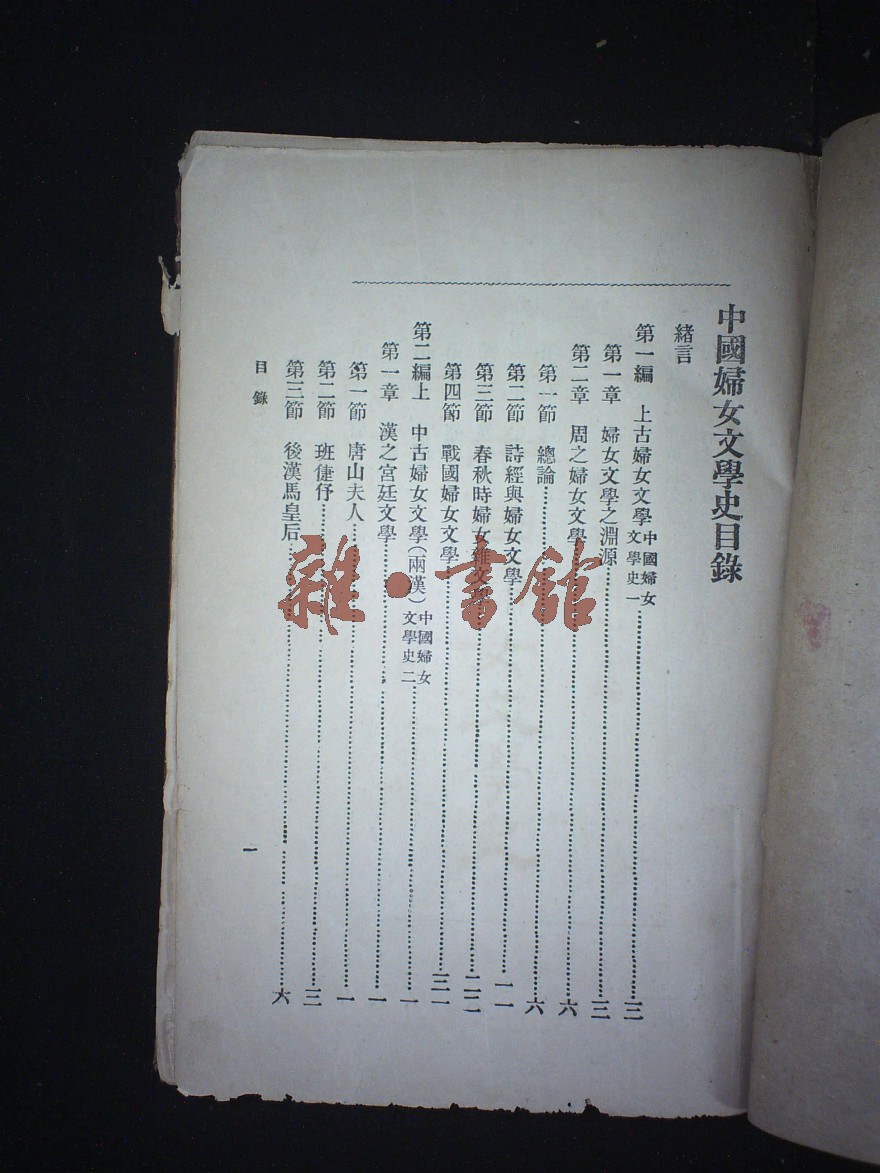 中國婦女文學史目錄
緒言
第一編　上古婦女文學 中國婦女文學史一……三
第一章　婦女文學之淵源……三
第二章　周之婦女文學……六
第一節　總論……六
第二節　詩經與婦女文學……一一
第三節　春秋時婦女雜文學……二二
第四節　戰國婦女文學……三一
第二編上　中古婦女文學(兩漢) 中國婦女文學史二……一
第一章　漢之宮廷文學……一
第一節　唐山夫人……一
第二節　班倢伃……三
第三節　後漢馬皇后……六
目錄
一
雜·書館